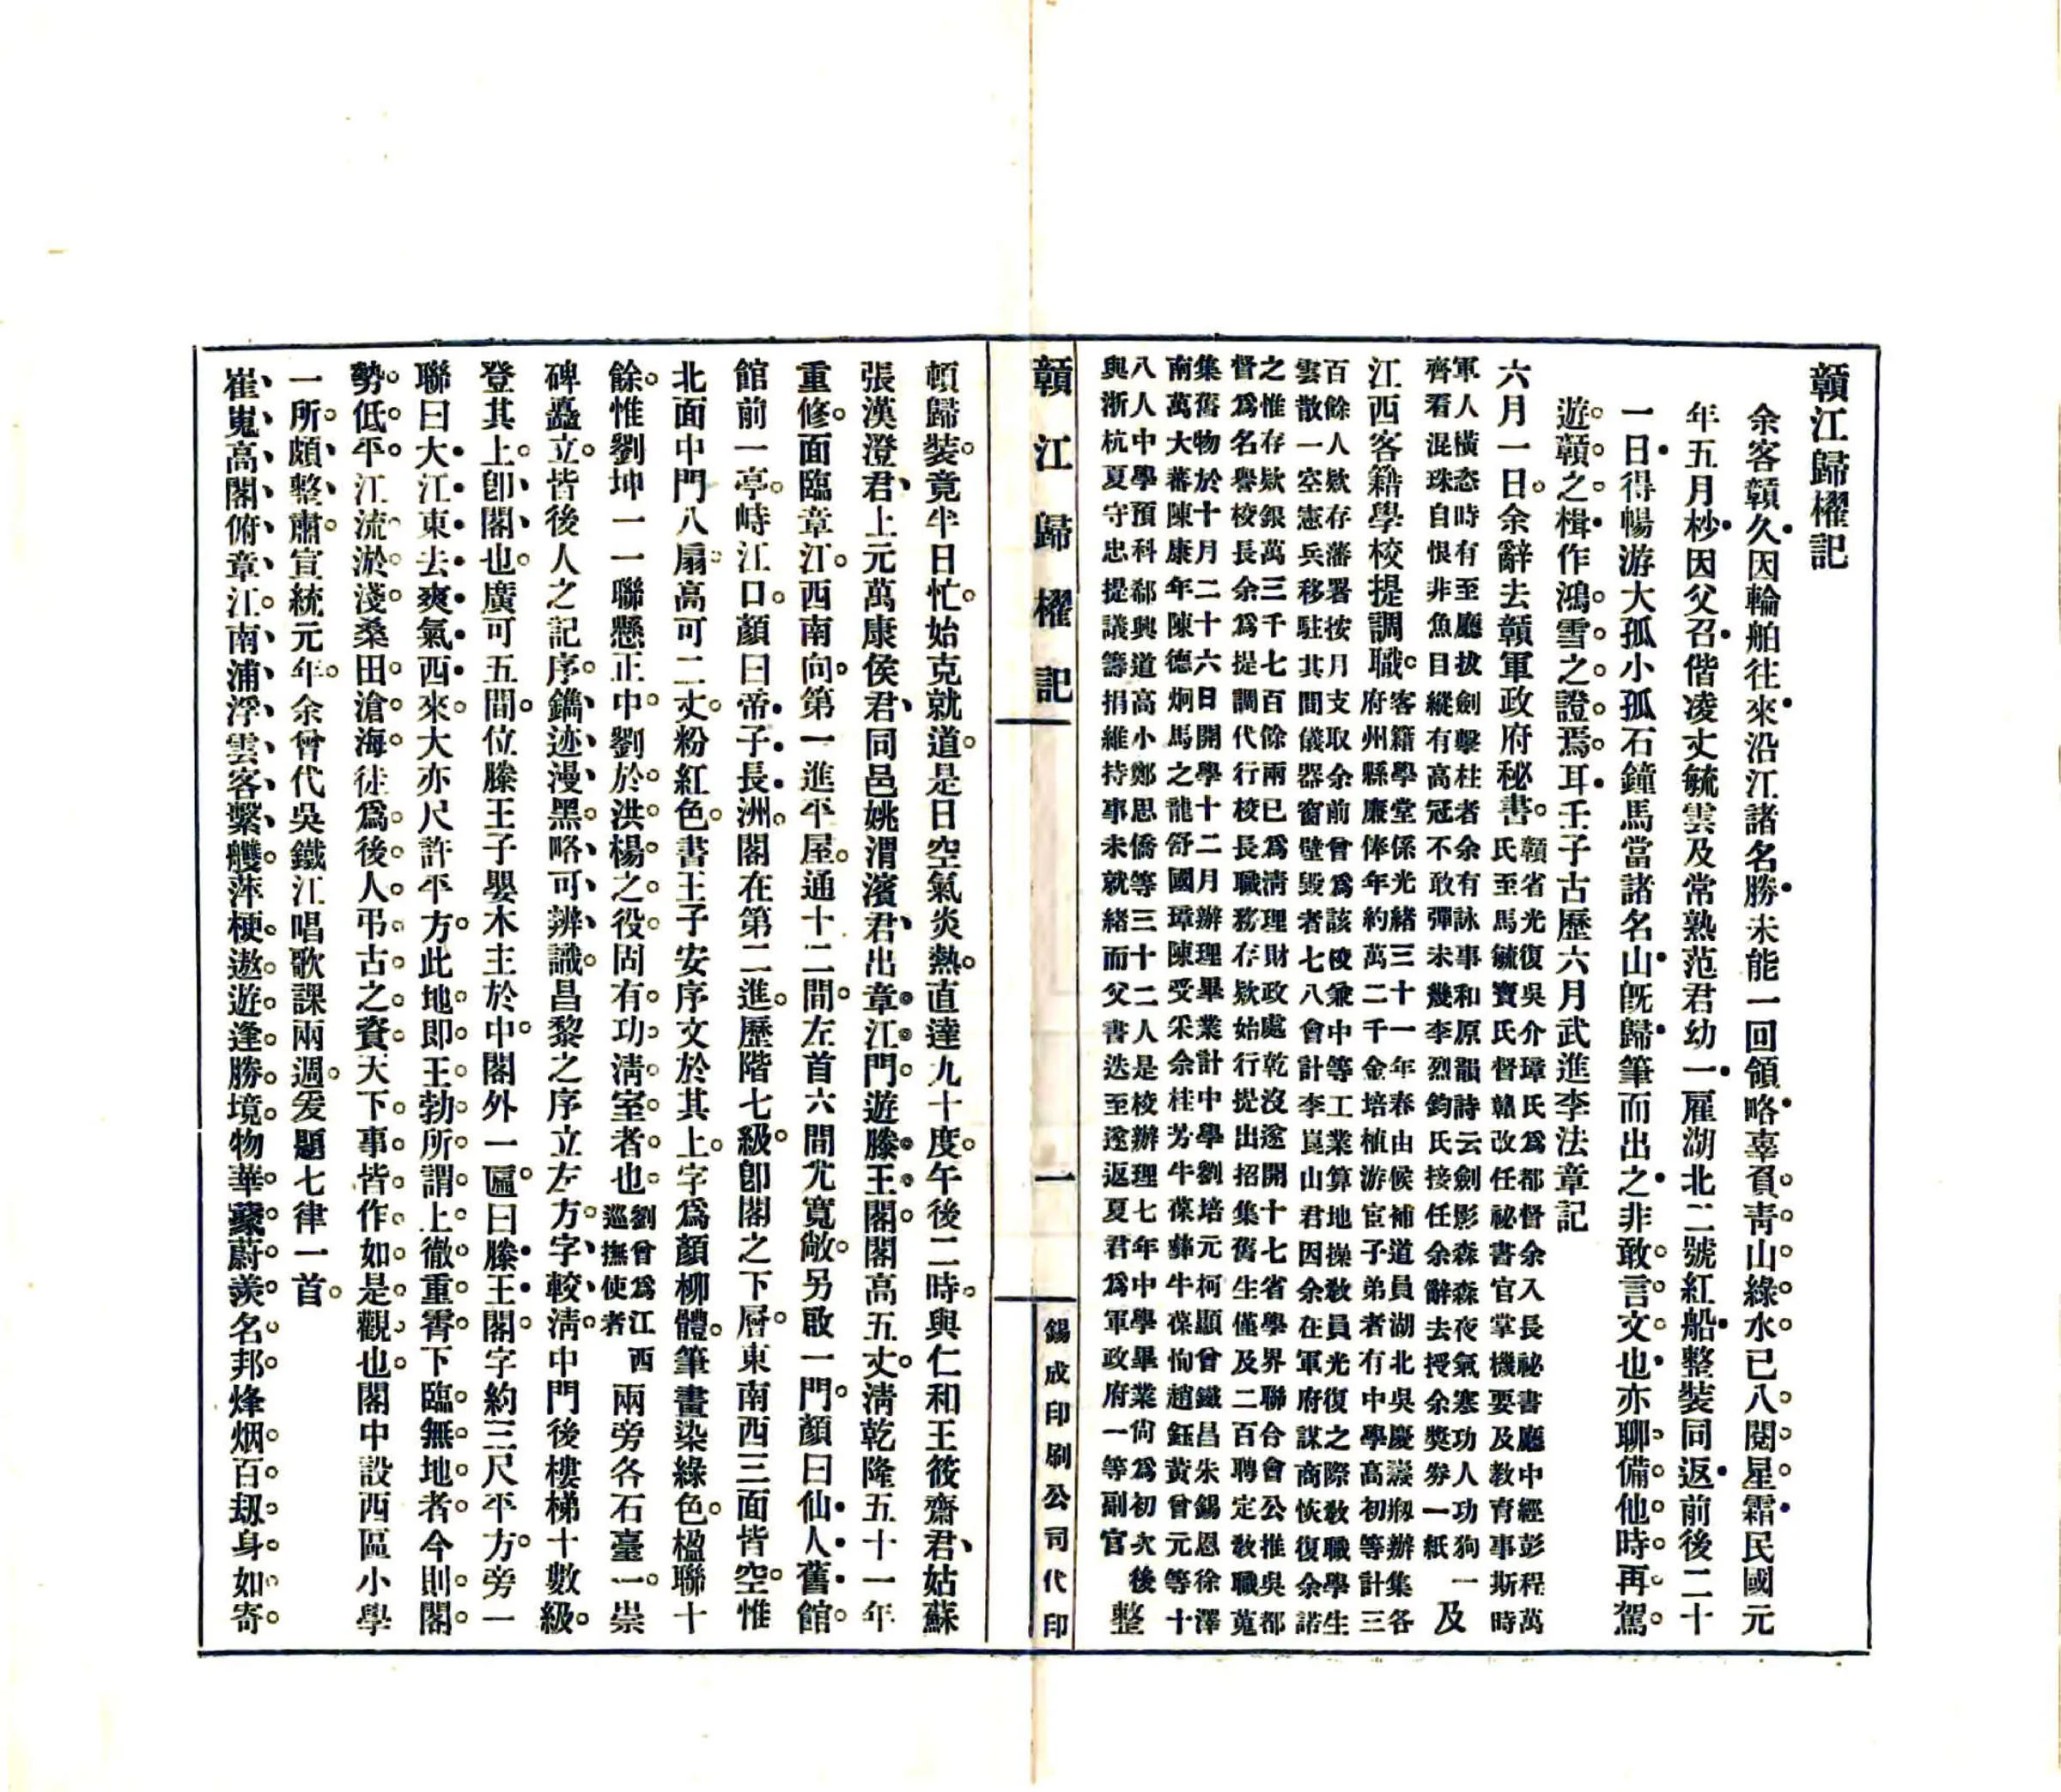 贛江歸櫂記
余客贛久因輪舶往來沿江諸名勝未能一回領略辜負青山綠水已八閱星霜民國元
年五月杪因父召偕凌丈毓雲及常熟范君幼一雇湖北二號紅船整裝同返前後二十
一日得暢游大孤小孤石鐘馬當諸名山旣歸筆而出之非敢言文也亦聊備他時再駕
遊贛之楫作鴻雪之證焉耳壬子古歷六月武進李法章記
六月一日余辭去贛軍政府秘書贛省光復吳介璋氏爲都督余入長祕書廳中經彭程萬
氏至馬毓寶氏督贛改任祕書官掌機要及敎育事斯時
軍人橫恣時有至廳拔劍擊柱者余有詠事和原韻詩云劍影森森夜氣寒功人功狗一
齊看混珠自恨非魚目縱有高冠不敢彈未幾李烈鈞氏接任余辭去授余獎劵一紙及
江西客籍學校提調職客籍學堂係光緒三十一年春由候補道員湖北吳慶燾剏辦集各
府州縣廉俸年約萬二千金培植游宦子弟者有中學高初等計三
百餘人欵存藩署按月支取余前曾爲該校兼中等工業算地操敎員光復之際敎職學生
雲散一空憲兵移駐其間儀器窗壁毀者七八會計李崑山君因余在軍府謀商恢復余諾
之惟存欵銀萬三千七百餘兩已爲淸理財政處乾沒迨開十七省學界聯合會公推吳都
督爲名譽校長余爲提調代行校長職務存欵始行提出招集舊生僅及二百聘定敎職蒐
集舊物於十月二十六日開學十二月辦理畢業計中學劉培元柯顯曾鐵昌朱錫恩徐澤
南萬大蕃陳康年陳德炯馬之龍舒國璋陳受采余桂芳牛葆彝牛葆恂趙鈺黃曾元等十
八人中學預科郗興道高小鄭思僑等三十二人是校辦理七年中學畢業尙爲初次後
與浙杭夏守忠提議籌捐維持事未就緒而父書迭至遂返夏君爲軍政府一等副官整
贛江歸櫂記
一
錫成印刷公司代印
頓歸裝竟半日忙始克就道是日空氣炎熱直達九十度午後二時與仁和王筱齋君姑蘇
張漢澄君上元萬康侯君同邑姚渭濱君出章江門遊滕王閣閣高五丈淸乾隆五十一年
重修面臨章江西南向第一進平屋通十二間左首六間尤寬敞另啟一門顏曰仙人舊館
館前一亭峙江口顏曰帝子長洲閣在第二進歷階七級卽閣之下層東南西三面皆空惟
北面中門八扇高可二丈粉紅色書王子安序文於其上字爲顏柳體筆畫染綠色楹聯十
餘惟劉坤一一聯懸正中劉於洪楊之役固有功淸室者也劉曾爲江西
巡撫使者兩旁各石臺一崇
碑矗立皆後人之記序鐫迹漫黑略可辨識昌黎之序立左方字較淸中門後樓梯十數級
登其上卽閣也廣可五間位滕王子嬰木主於中閣外一匾曰滕王閣字約三尺平方旁一
聯曰大江東去爽氣西來大亦尺許平方此地即王勃所謂上徹重霄下臨無地者今則閣
勢低平江流淤淺桑田滄海徒爲後人弔古之資天下事皆作如是觀也閣中設西區小學
一所頗整肅宣統元年余曾代吳鐵江唱歌課兩週爰題七律一首
崔嵬高閣俯章江南浦浮雲客繫艭萍梗遨遊逢勝境物華薉蔚羨名邦烽烟百刼身如寄